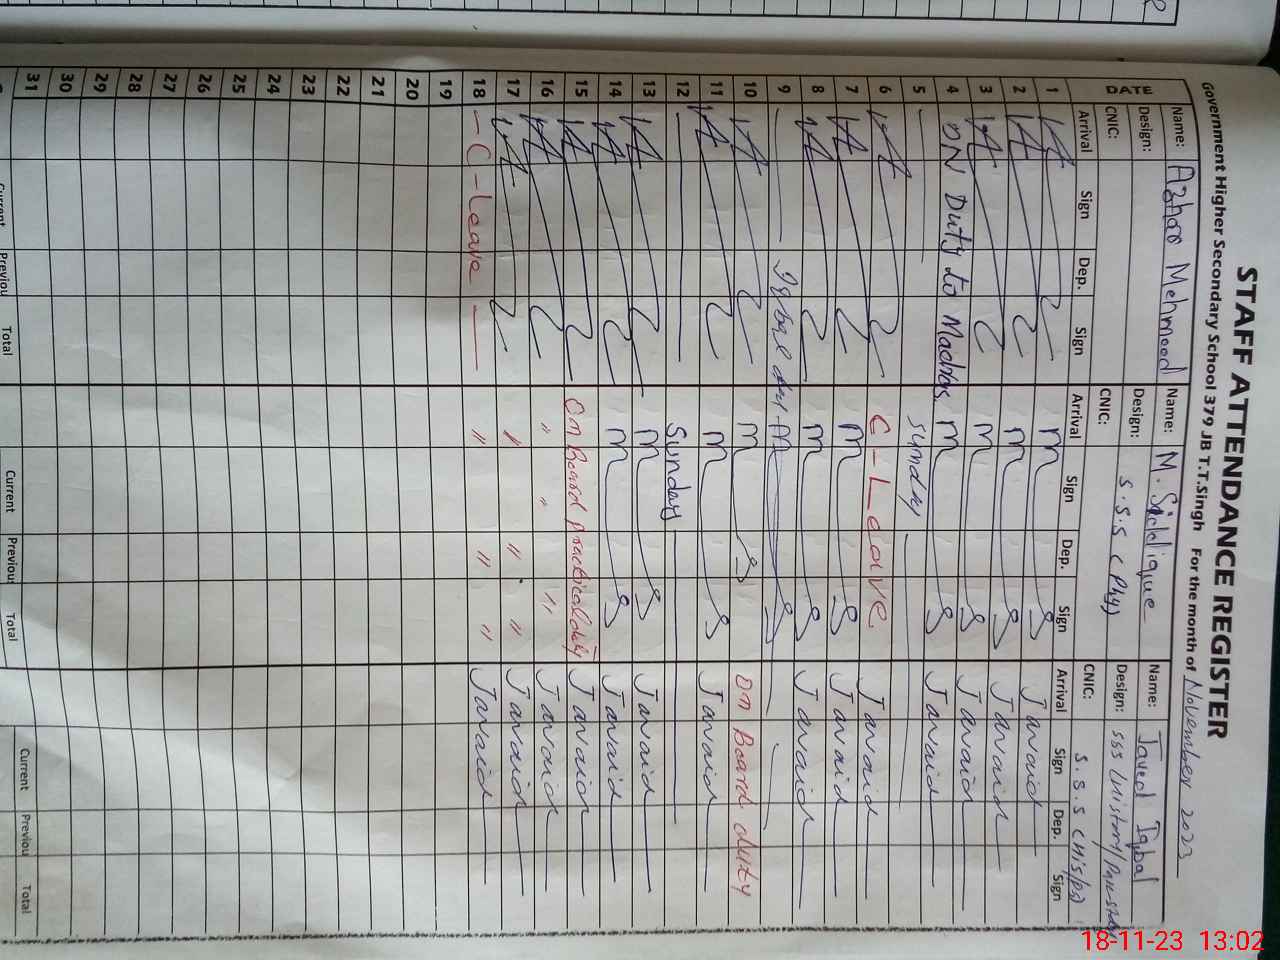 STAFF ATTENDANCE REGISTER
Government Higher Secondary School 379 JB T.T.Singh For the month of November 2023
DATE
Name: Azhar Mehmood Name: M. Siddique Name: Javed Iqbal
Design: Design: S.S.S (Phy) Design: SSS (History/Pak-study
CNIC: CNIC: CNIC: S.S.S (His/PS)
Arrival Sign Dep. Sign Arrival Sign Dep. Sign Arrival Sign Dep. Sign
1 Javaid
2 Javaid
3 Javaid
4 ON Duty to Javaid
5 Sunday
6 C-Leave Javaid
7 Javaid
8 Javaid
9 Iqbal day
10 On Board duty
11 Javaid
12 Sunday
13 Javaid
14 Javaid
15 On Board practical duty Javaid
16 " " " Javaid
17 " " " Javaid
18 - C-Leave - " " " Javaid
19
20
21
22
23
24
25
26
27
28
29
30
31
Current Previou Total Current Previou Total Current Previou Total
18-11-23 13:02